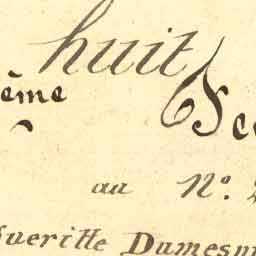 huit
ème Se
au N.º 2
gueritte Dumesn